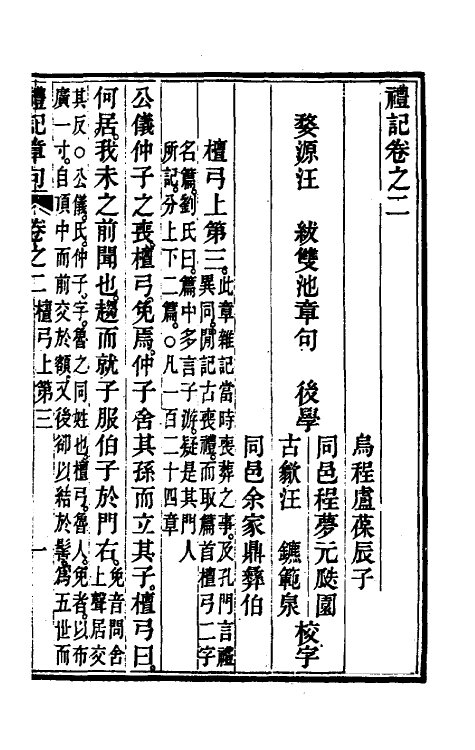 禮記卷之二
烏程盧葆辰子
婺源汪　紱雙池章句　後學
同邑程夢元陔園
古歙汪　鑣範泉
校字
同邑余家鼎彝伯
檀弓上第三
此章雜記當時喪葬之事及孔門言禮
異同閒記古喪禮而取篇首檀弓二字
名篇劉氏曰篇中多言子游疑是其門人
所記分上下二篇○凡一百二十四章
公儀仲子之喪檀弓免焉仲子舍其孫而立其子檀弓曰
何居我未之前聞也趨而就子服伯子於門右
免音問舍
上聲居交
其反○公儀氏仲子字魯之同姓也檀弓魯人免者以布
廣一寸自頂中而前交於額又後卻以結於髻爲五世而
禮記章句　卷之二　檀弓上第三　一